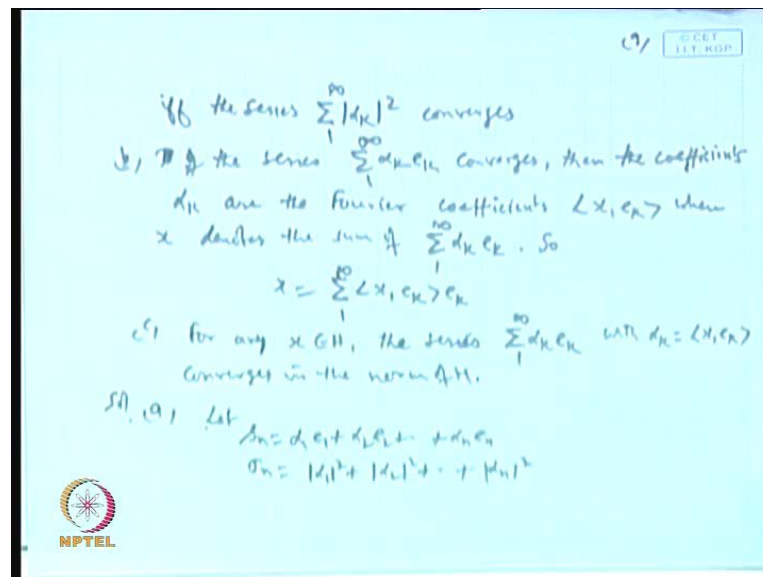 (9)
© CET
I.I.T. KGP
iff the series ∑_1^∞ |α_k|² converges
b, If the series ∑_1^∞ α_k e_k converges, then the coefficients
α_k are the Fourier coefficients <x, e_k> where
x denotes the sum of ∑_1^∞ α_k e_k. So
x = ∑_1^∞ <x, e_k> e_k
c, For any x ∈ H, the series ∑_1^∞ α_k e_k with α_k = <x, e_k>
converges in the norm of H.
(a) Let
s_n = α_1 e_1 + α_2 e_2 + · + α_n e_n
σ_n = |α_1|² + |α_2|² + · + |α_n|²
NPTEL